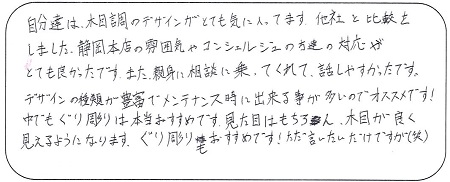 自分達は、木目調のデザインがとても気に入ってます。他社と比較を
しました。静岡本店の雰囲気やコンシェルジュの方達の対応が
とても良かったです。また、親身に相談に乗ってくれて、話しやすかったです。
デザインの種類が豊富でメンテナンス時に出来る事が多いのでオススメです!
中でもぐり彫りは本当おすすめです。見た目はもちろん、木目が良く
見えるようになります。ぐり彫り おすすめです!ただ言いたいだけですが(笑)